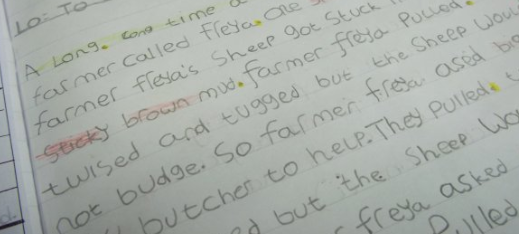 LO: To
A Long. Long time
farmer called freya. One
farmer freya's Sheep got Stuck
Sticky brown mud. farmer freya Pulled.
twised and tugged but the Sheep Would
not budge. So farmer freya ased
butcher to help. They Pulled.
but the Sheep
freya asked
Pulled